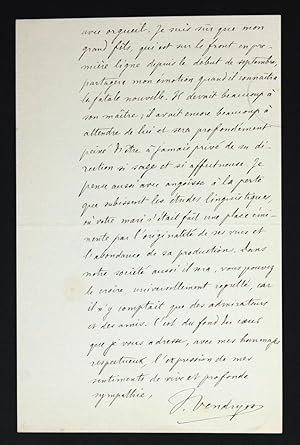 avec orgueil. Je suis sûr que mon
grand fils, qui est sur le front en pre-
mière ligne depuis le début de septembre,
partagera mon émotion quand il connaîtra
la fatale nouvelle. Il devait beaucoup à
son maître; il avait encore beaucoup à
attendre de lui et sera profondément
peiné d'être à jamais privé de sa di-
rection si sage et si affectueuse. Je
pense aussi avec angoisse à la perte
que subissent les études linguistiques,
où votre mari s'était fait une place émi-
nente par l'originalité de ses vues et
l'abondance de sa production. Dans
notre société aussi il sera, vous pouvez
le croire, universellement regretté, car
il n'y comptait que des admirateurs
et des amis. C'est du fond du cœur
que je vous adresse, avec mes hommages
respectueux, l'expression de mes
sentiments de vive et profonde
sympathie,
J. Vendryes